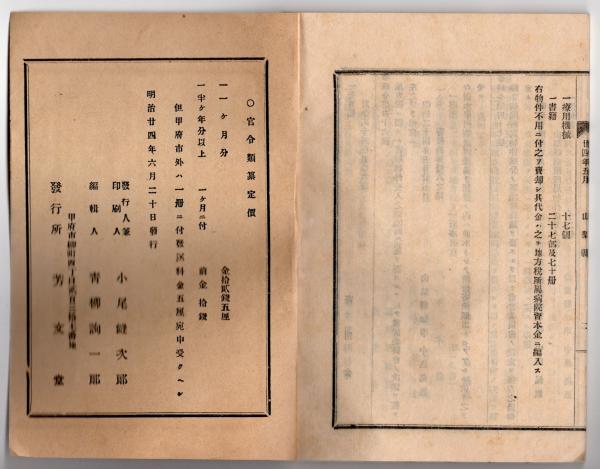 廿四年五月
山梨縣
一療用機械 十七個
一書籍 二十七部及七十册
右物件不用ニ付之ヲ賣却シ其代金ハ之ヲ地方税所屬病院資本金ニ編入ス
〇官令類纂定價
一一ヶ月分 金拾貳錢五厘
一半ヶ年分以上 一ヶ月ニ付 前金 拾錢
但甲府市外ハ一册ニ付遞送料金五厘宛申受クヘシ
明治廿四年六月二十日發行
發行人兼印刷人 小尾健次郎
編輯人 青柳詢一郎
甲府市
發行所 芳文堂